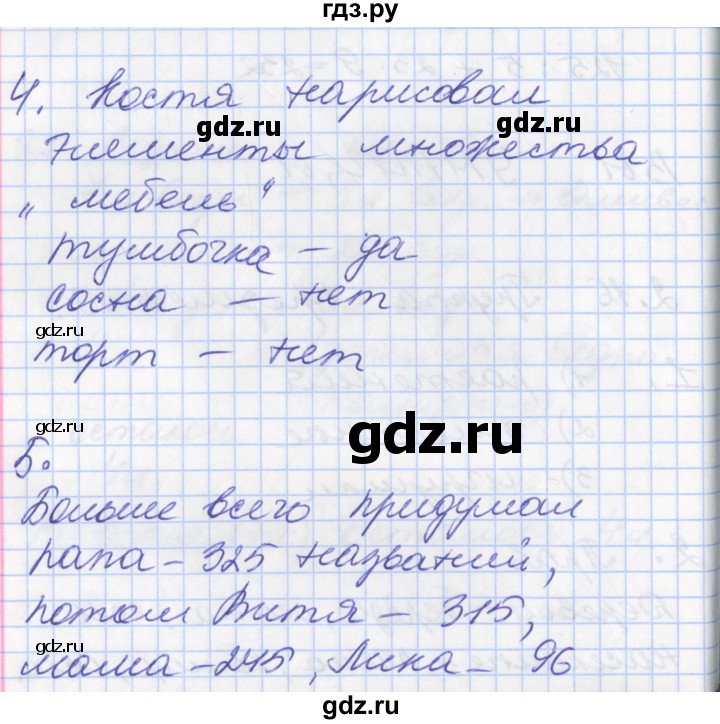 гдз.ру
4. Костя нарисовал
gdz.ru gdz.ru
элементы множества
„ мебель“
тумбочка – да
gdz.ru
сосна – нет
gdz.ru
торт – нет
gdz.ru
5.
Больше всего придумал
папа – 325 названий,
gdz.ru gdz.ru
потом Витя – 315,
мама – 245, Лика – 96
gdz.ru